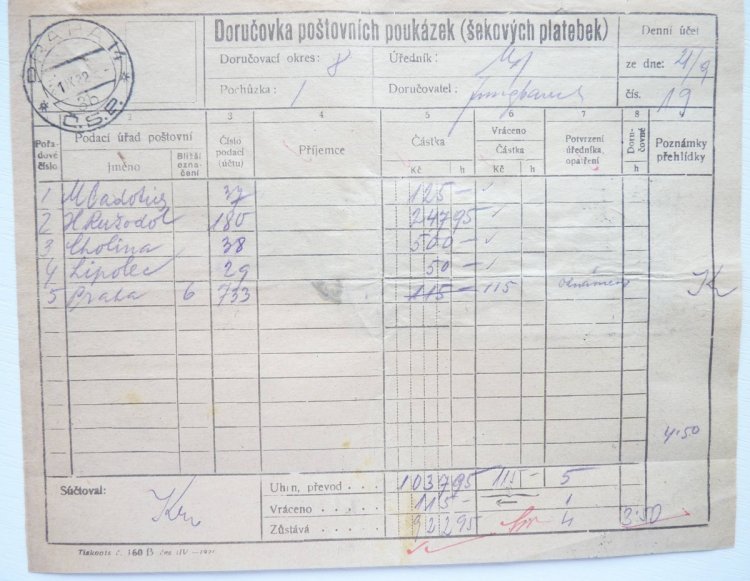 Doručovka poštovních poukázek (šekových platebek)
Doručovací okres: 8 Úředník:
Pochůzka: 1 Doručovatel:
Denní účet
ze dne: 21/9
čís. 19
ČSR
Pořadové číslo
2
Podací úřad poštovní
jméno
Bližší označení
3
Číslo podací (účtu)
4
Příjemce
5
Částka
Kč h
6
Vráceno
Částka
Kč h
7
Potvrzení úředníka, opatření
8
Doručovné
h
9
Poznámky přehlídky
1 37 125 –
2 H Ružodol 180 247 95
3 Cholina 38 500 –
4 Lipolec 29 50 –
5 Praha 6 733 115 – 115
4·50
Súčtoval:
Úhrn, převod . . . . 1037 95 115 – 5
Vráceno . . . . . 115 – 1
Zůstává . . . . 922 95 4 3·50
Tiskopis č. 160 B